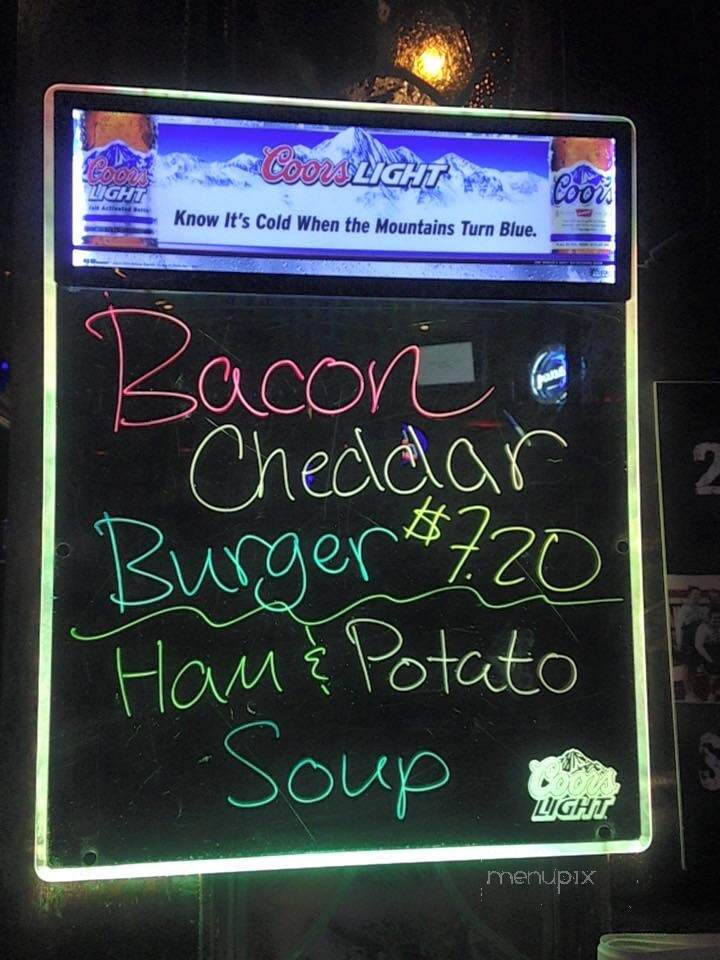 Coors LIGHT
Coors LIGHT
Coors
Know It's Cold When the Mountains Turn Blue.
Bacon
Cheddar
Burger $7.20
Ham & Potato
Soup
Coors
LIGHT
menupix
2